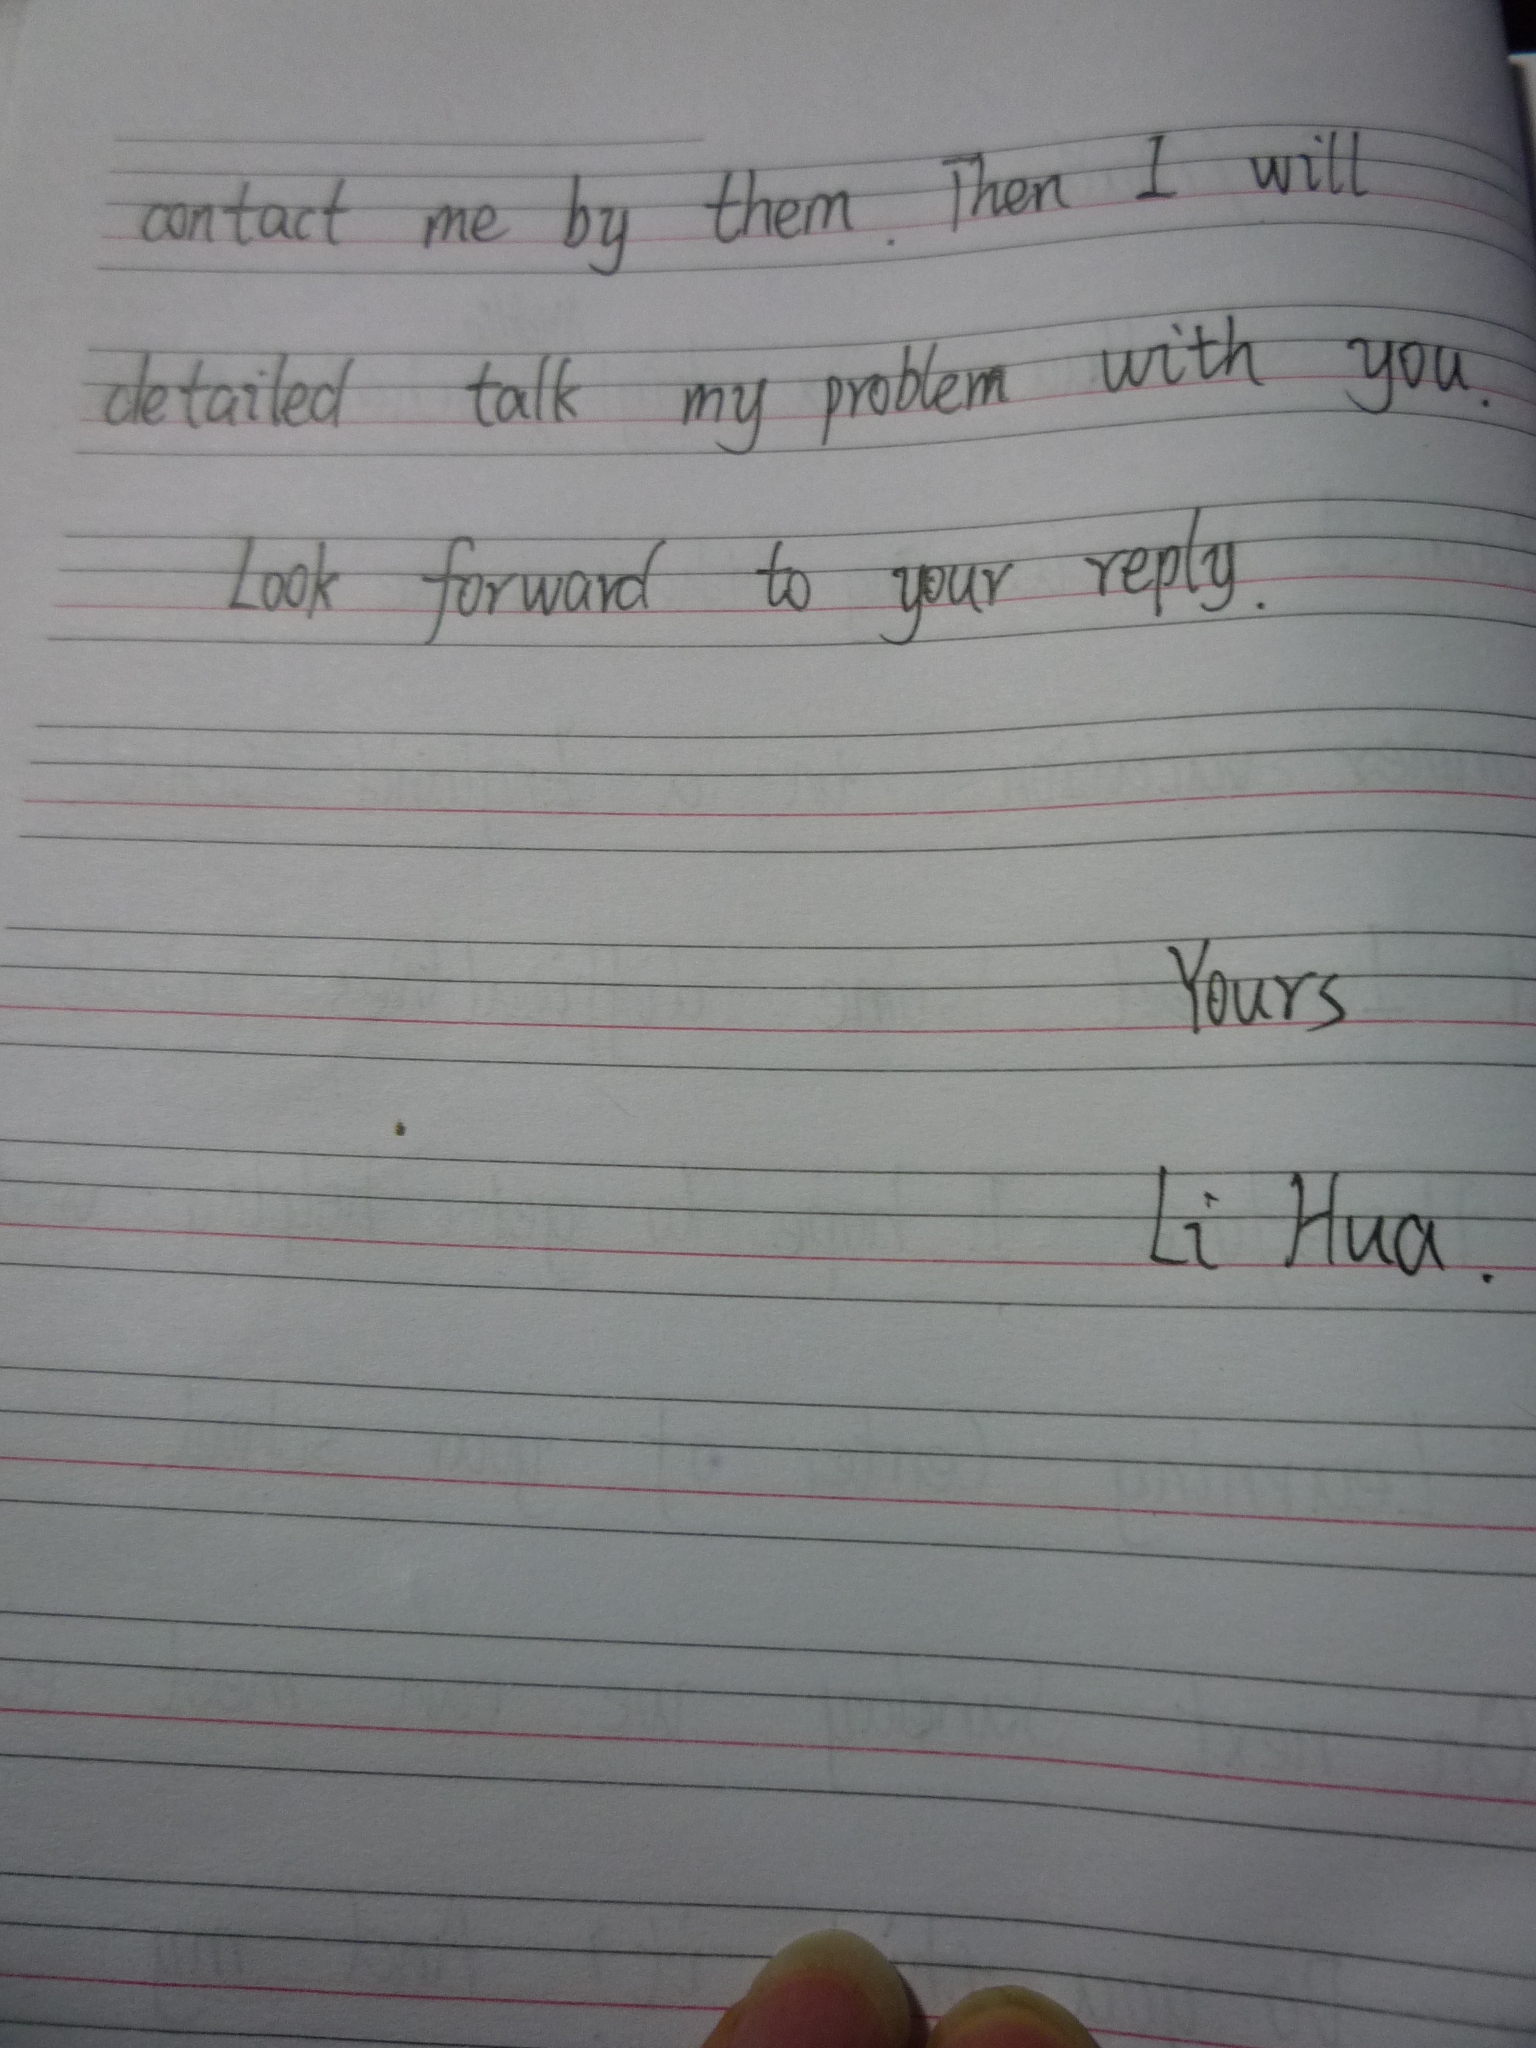 contact me by them. Then I will
detailed talk my problem with you.
Look forward to your reply.
Yours
Li Hua.